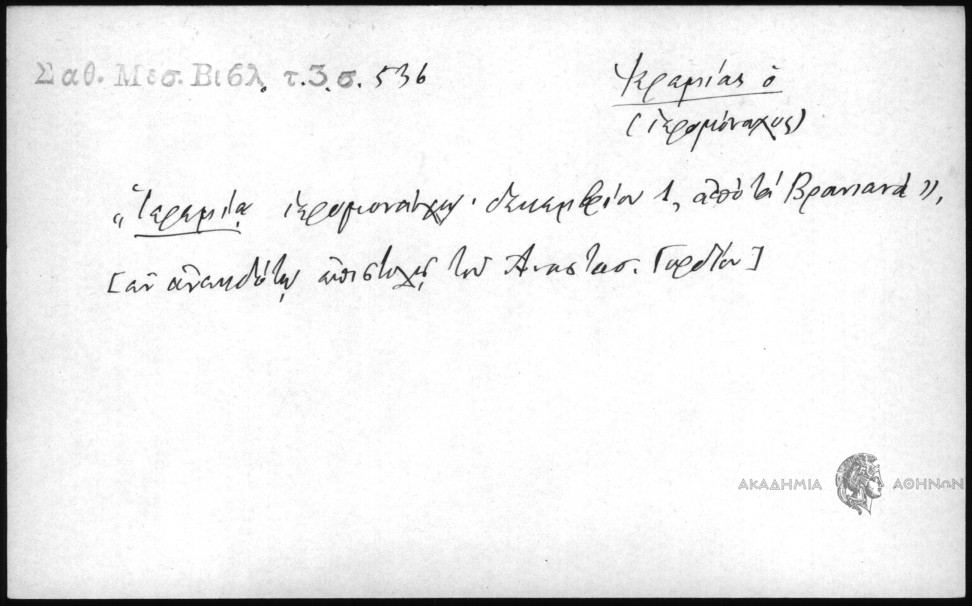 Σαθ. Μεσ. Βιβλ. τ. 3, σ. 536
Ἱερεμίας ὁ
(ἱερομόναχος)
"Ἱερεμίᾳ ἱερομονάχῳ· δεκεμβρίου 1, ἀπὸ τὰ Βρανιανά",
[ἐν ἀνεκδότῳ ἐπιστολῇ τοῦ Ἀναστασ. Γορδίου]
ΑΚΑΔΗΜΙΑ ΑΘΗΝΩΝ